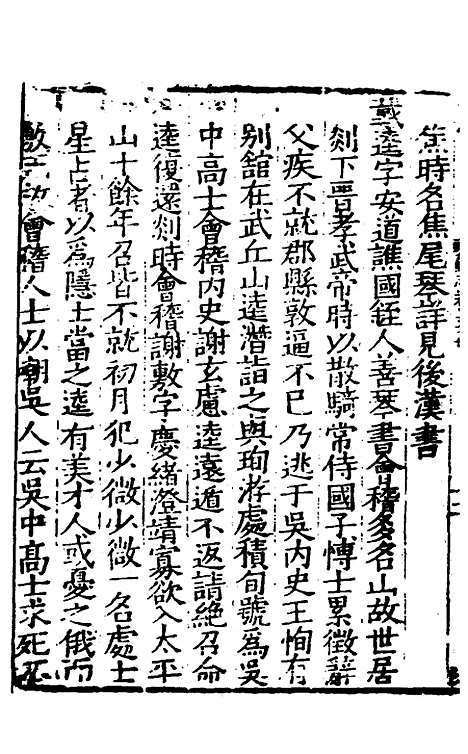 焦時名焦尾琴詳見後漢書
戴逵字安道譙國銍人善琴書會稽多名山故世居
剡下晉孝武帝時以散騎常侍國子博士累徵辭
父疾不就郡縣敦逼不已乃逃于吳内史王恂有
別舘在武丘山逵潛詣之與珣游處積旬號為吳
中高士會稽内史謝玄慮逵遠遁不返請絶召命
逵復還剡時會稽謝敷字慶緒澄靖寡欲入太平
山十餘年召皆不就初月犯少微少微一名處士
星占者以為隱士當之逵有美才人或憂之俄而
敷會稽人士以嘲吳人云吳中高士求死不